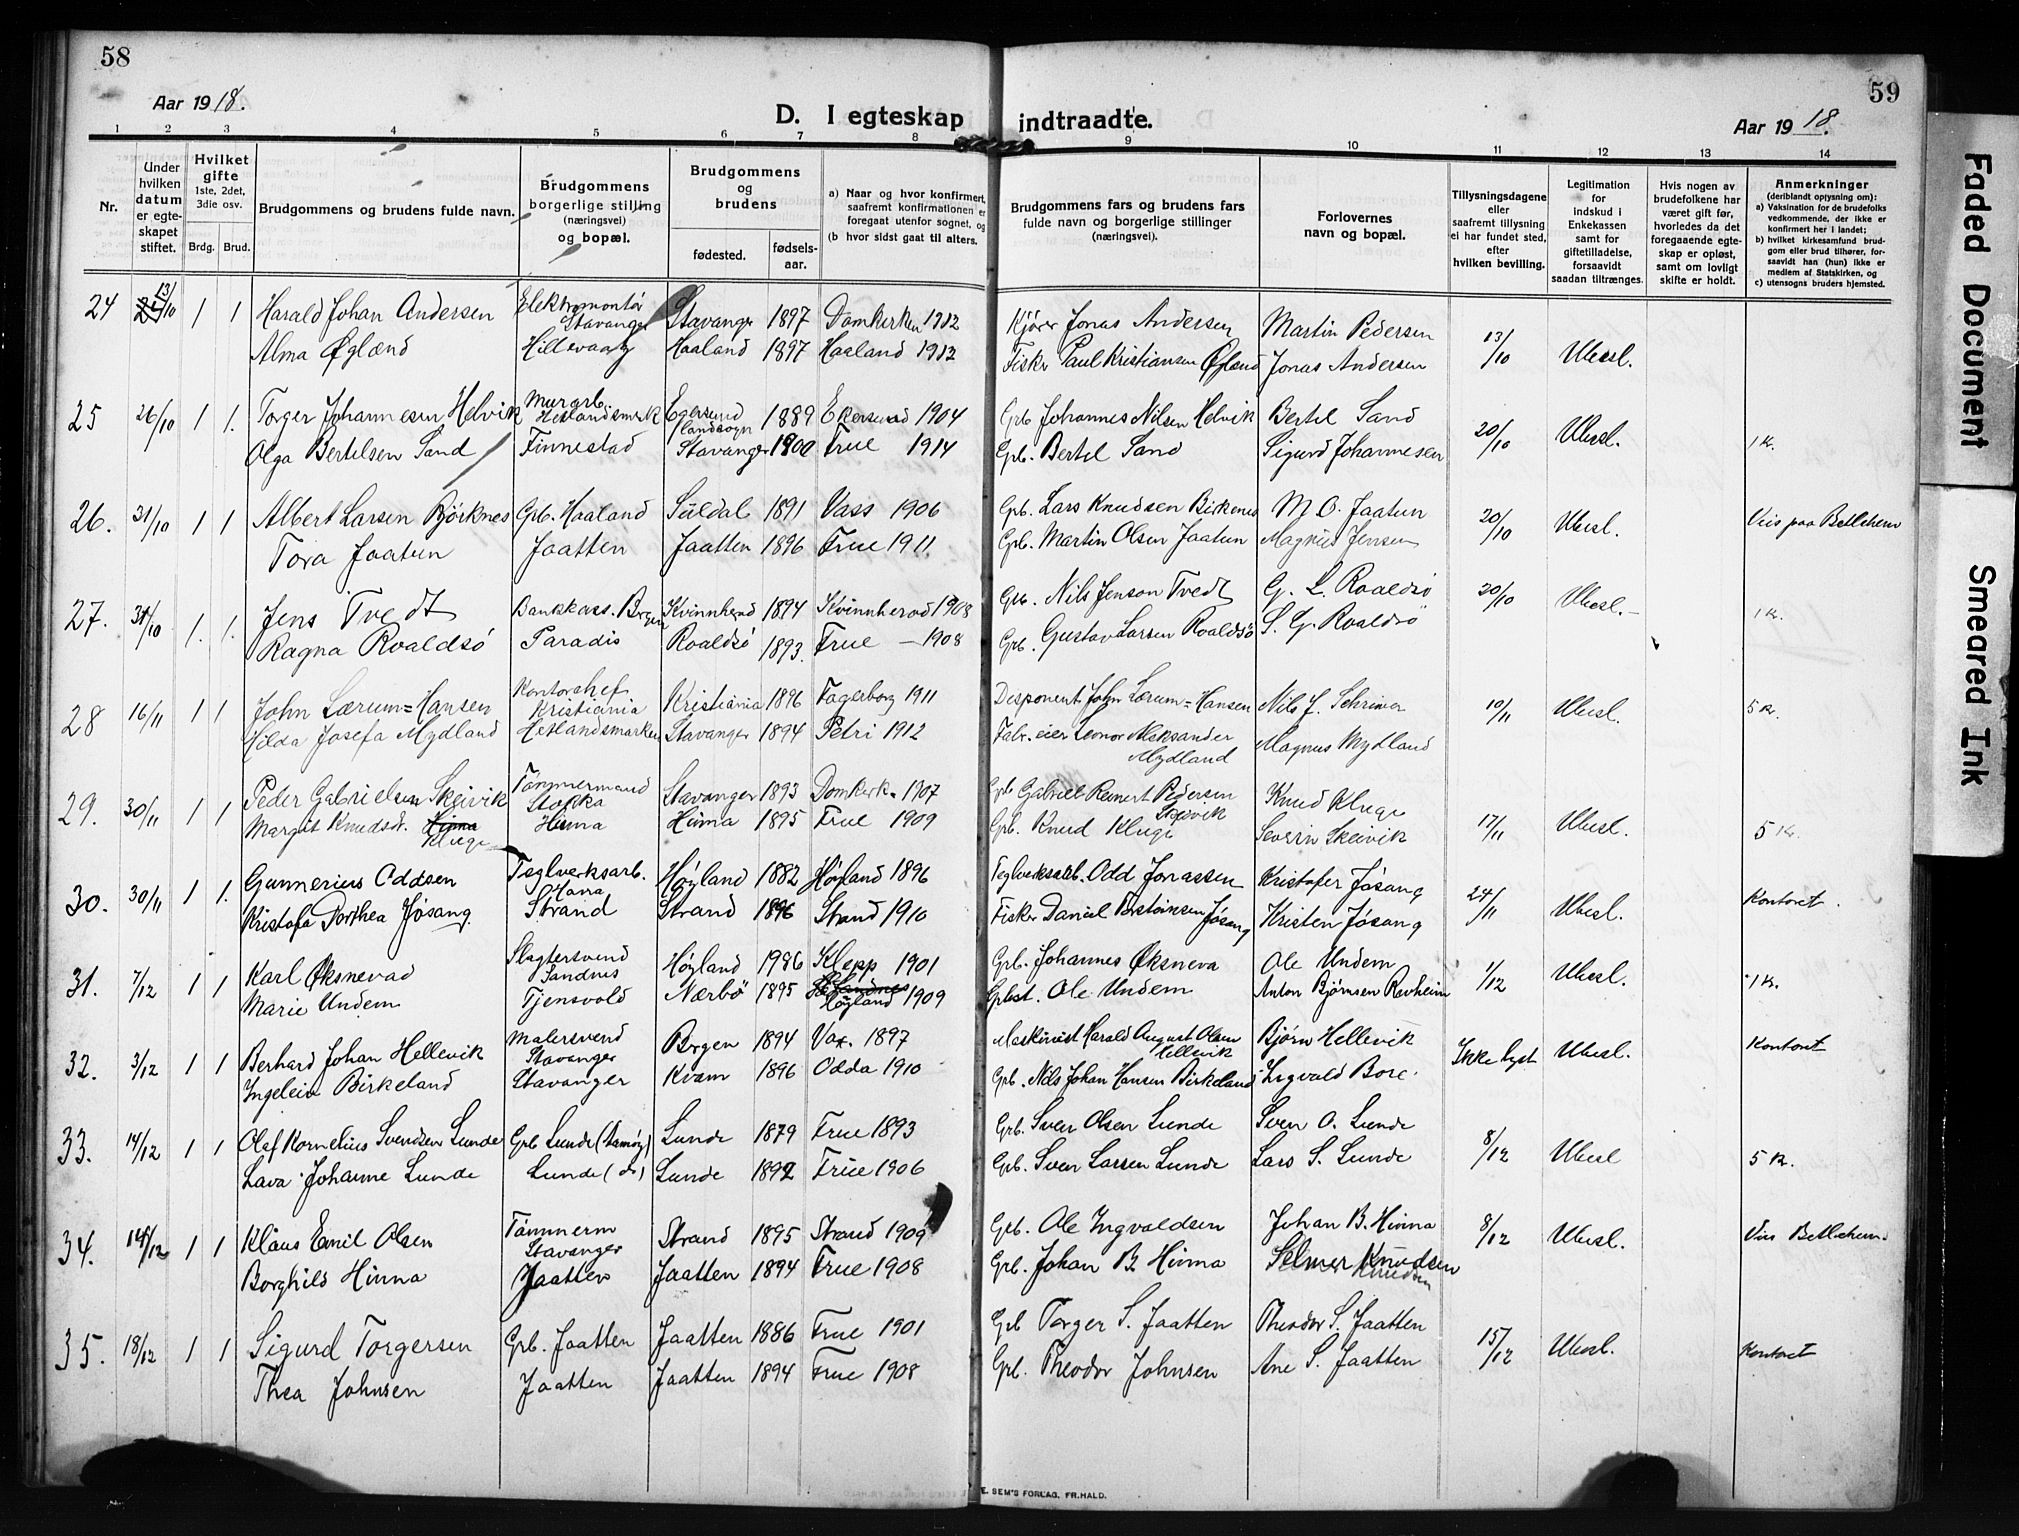 58
Aar 1918.
D. I egteskap indtraadte.
59
Aar 1918.
1 2 3 4 5 6 7 8 9 10 11 12 13 14
Nr.
Under hvilken datum er egte-skapet stiftet.
Hvilket gifte 1ste, 2det, 3die osv.
Brdg. Brud.
Brudgommens og brudens fulde navn.
Brudgommens borgerlige stilling (næringsvei) og bopæl.
Brudgommens og brudens
fødested. fødsels-aar.
a) Naar og hvor konfirmert, saafremt konfirmationen er foregaat utenfor sognet, og
(b hvor sidst gaat til alters.
Brudgommens fars og brudens fars fulde navn og borgerlige stillinger (næringsvei).
Forlovernes navn og bopæl.
Tillysningsdagene eller saafremt tillysning ei har fundet sted, efter hvilken bevilling.
Legitimation for Indskud i Enkekassen samt for giftetilladelse, forsaavidt saadan tiltrænges.
Hvis nogen av brudefolkene har været gift før, hvorledes da det foregaaende egte-skap er opløst, samt om lovligt skifte er holdt.
Anmerkninger (deriblandt oplysning om):
a) Vaksination for de brudefolks vedkommende, der ikke er konfirmert her i landet;
b) hvilket kirkesamfund brud-gom eller brud tilhører, for-saavidt han (hun) ikke er medlem af Statskirken, og
c) utensogns bruders hjemsted.
24 13/10 1 1 Harald Johan Andersen Elektromontör Stavanger Stavanger 1897 Domkirken 1912 Kjörer Jonas Andersen Martin Pedersen 13/10 Ubesl.
Alma Øglænd Hillevaag Haaland 1897 Haaland 1912 Fisker Paul Kristiansen Øglænd Jonas Andersen
25 26/10 1 1. Torger Johannesen Helvik Murarb. Hetlandsmark Egersund landsogn 1889 Ekersund 1904 Grb Johannes Nilsen Helvik Bertel Sand 20/10 Ubesl. 1 Kr.
Olga Bertelsen Sand Finnestad Stavanger 1900 Frue 1914 Grb. Bertel Sand Sigurd Johannesen
26. 31/10 1 1 Albert Larsen Bjørknes Grb. Haaland Süldal 1891 Vass 1906 Grb. Lars Knudsen Birkenes M. O. Jaatun 20/10 Ubesl. Viis paa Betlehem
Tora Jaatun Jaatten Jaatten 1896 Frue 1911. Grb. Martin Olsen Jaatun Magnus Jensen
27. 31/10 1. 1. Jens Tvedt Bankkass. Bergen Kvinnherad 1894 Kvinnherad 1908 Grb. Nils Jenson Tvedt G. L. Roaldsö 20/10 Ubesl. 1 Kr.
Ragna Roaldsö Paradis Roaldsö 1893. Frue — 1908 Grb. Gustav Larsen Roaldsö S. G. Roaldsö
28 16/11 1 1 John Lærum=Hansen Kontorchef Kristiania Kristiania 1896 Fagerborg 1911 Disponent John Lærum=Hansen Nils J. Schriver 10/11 Ubesl. 5 Kr.
Hilda Josefa Mydland Hetlandsmarken Stavanger 1894 Petri 1912 Fabr.eier Leonor Aleksander Mydland Magnus Mydland
29. 30/11 1 1 Peder Gabrielsen Skeivik Tömmermand Stokka Stavanger 1893 Domkerk. 1907 Grb Gabriell Reinert Pedersen Skeivik Knud Kluge 17/11 Ubesl. 5 Kr.
Margit Knudsdt. Hinna Kluge Hinna Hinna 1895 Frue 1909 Grb. Knud Kluge Severin Skeivik
30. 30/11 1 1. Gunnerius Oddsen Teglverksarb. Hana Høyland 1882 Høyland 1896 Teglverksarb. Odd Jonassen Kristofer Jøsang 24/11 Ubesl. Kontoret.
Kristofa Dorthea Jøsang. Strand Strand 1896 Strand 1910 Fisker Daniel Torsteinsen Jøsang Kristen Jøsang
31. 7/12 1 1 Karl Øksnevad Slagtersvend Sandnes Høyland 1986 Klepp 1901 Grb. Johannes Øksneva Ole Undem 1/12 Ubesl. 1 Kr.
Marie Undem Tjensvold Nærbö 1895 Høyland 1909 Grbst. Ole Undem Anton Bjørnsen Revheim
32. 3/12 1 1 Berhard Johan Hellevik Malersvend Stavanger Bergen 1894 Vax. 1897 Maskinist Harald August Olsen Hellevik Bjørn Hellevik Ikke lyst Ubesl. Kontoret
Ingeleiv Birkeland Stavanger Kvam 1896 Odda 1910 Grb. Nils Johan Hansen Birkeland Ingvald Bore.
33. 14/12 1 1 Olaf Kornelius Svendsen Lunde Grb Lunde (Usmöy) Lunde 1879 Frue 1893 Grb. Sven Olsen Lunde Sven O. Lunde 8/12 Ubesl 5 Kr.
Lava Johanne Lunde Lunde (do) Lunde 1892 Frue 1906 Grb. Sven Larsen Lunde Lars S. Lunde
34. 14/12 1 1 Klaus Emil Olsen Tömmerm Stavanger Strand 1895 Strand 1909 Grb. Ole Ingvaldsen Johan B. Hinna 8/12 Ubesl. Viis Betlehem.
Borghild Hinna Jaatten Jaatten 1894 Frue 1908 Grb. Johan B. Hinna Selmer Knudsen Knudsen
35. 18/12 1 1 Sigurd Torgersen Grb. Jaatten Jaatten 1886 Frue 1901 Grb Torger S. Jaatten Theodor S. Jaatten 15/12 Ubesl. Kontoret
Thea Johnsen Jaatten Jaatten 1894 Frue 1908 Grb. Theodor Johnsen Ane S. Jaatten
E. SEM'S FORLAG, FR.HALD.
Faded Document
Smeared Ink